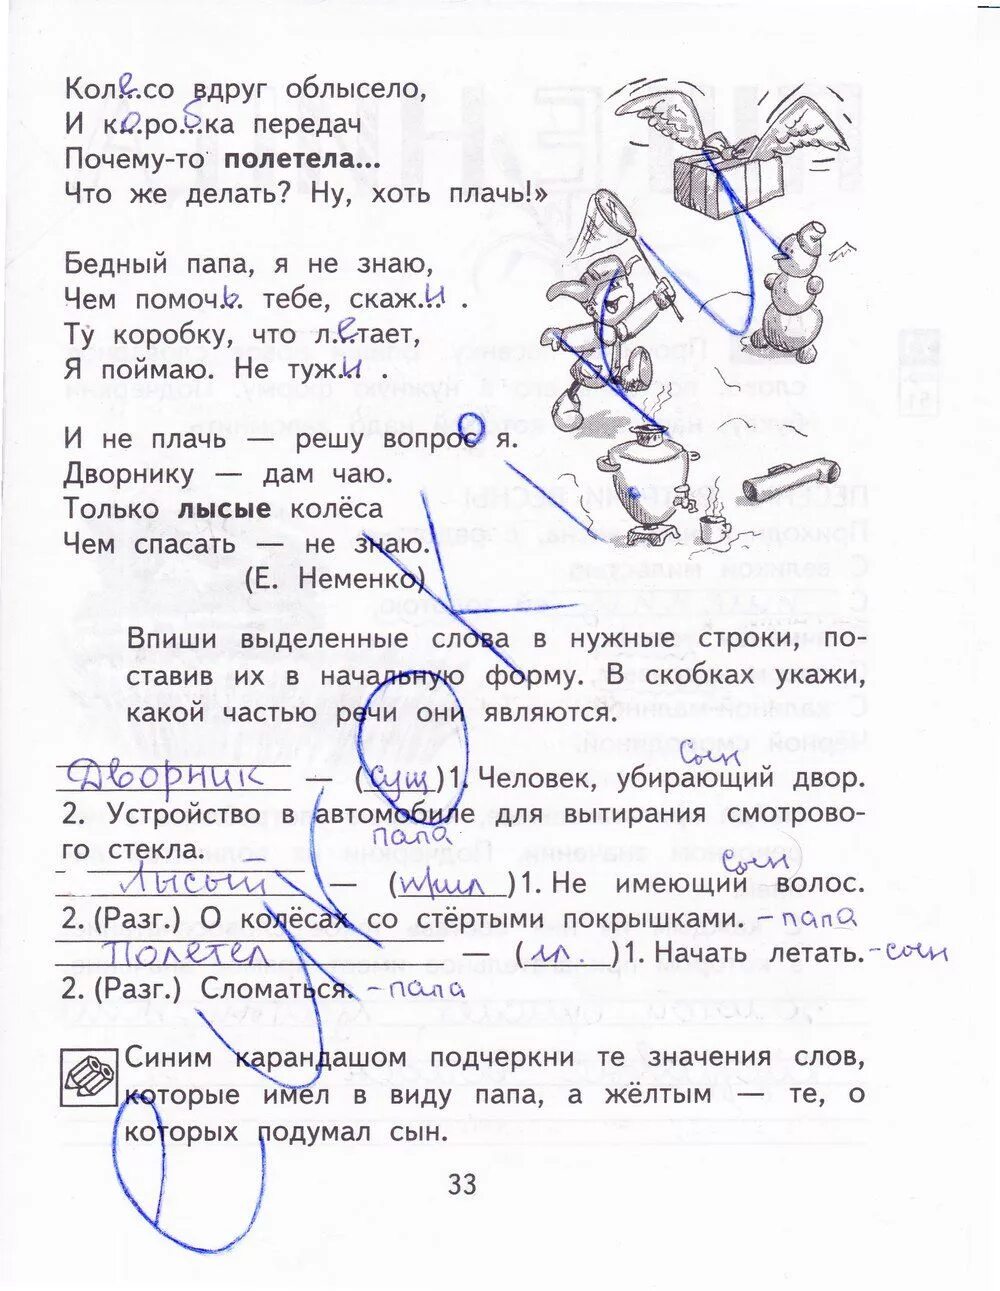 Кол е со вдруг облысело,
И к о ро б ка передач
Почему-то полетела...
Что же делать? Ну, хоть плачь!»
Бедный папа, я не знаю,
Чем помоч ь тебе, скаж и .
Ту коробку, что л е тает,
Я поймаю. Не туж и .
И не плачь — решу вопрос я.
Дворнику — дам чаю.
Только лысые колёса
Чем спасать — не знаю.
(Е. Неменко)
Впиши выделенные слова в нужные строки, по-
ставив их в начальную форму. В скобках укажи,
какой частью речи они являются.
сын
Дворник — (сущ) 1. Человек, убирающий двор.
2. Устройство в автомобиле для вытирания смотрово-
папа
го стекла.
сын
Лысый — (прил) 1. Не имеющий волос.
2. (Разг.) О колёсах со стёртыми покрышками. - папа
Полетел — (гл.) 1. Начать летать. - сын
2. (Разг.) Сломаться. - папа
Синим карандашом подчеркни те значения слов,
которые имел в виду папа, а жёлтым — те, о
которых подумал сын.
33